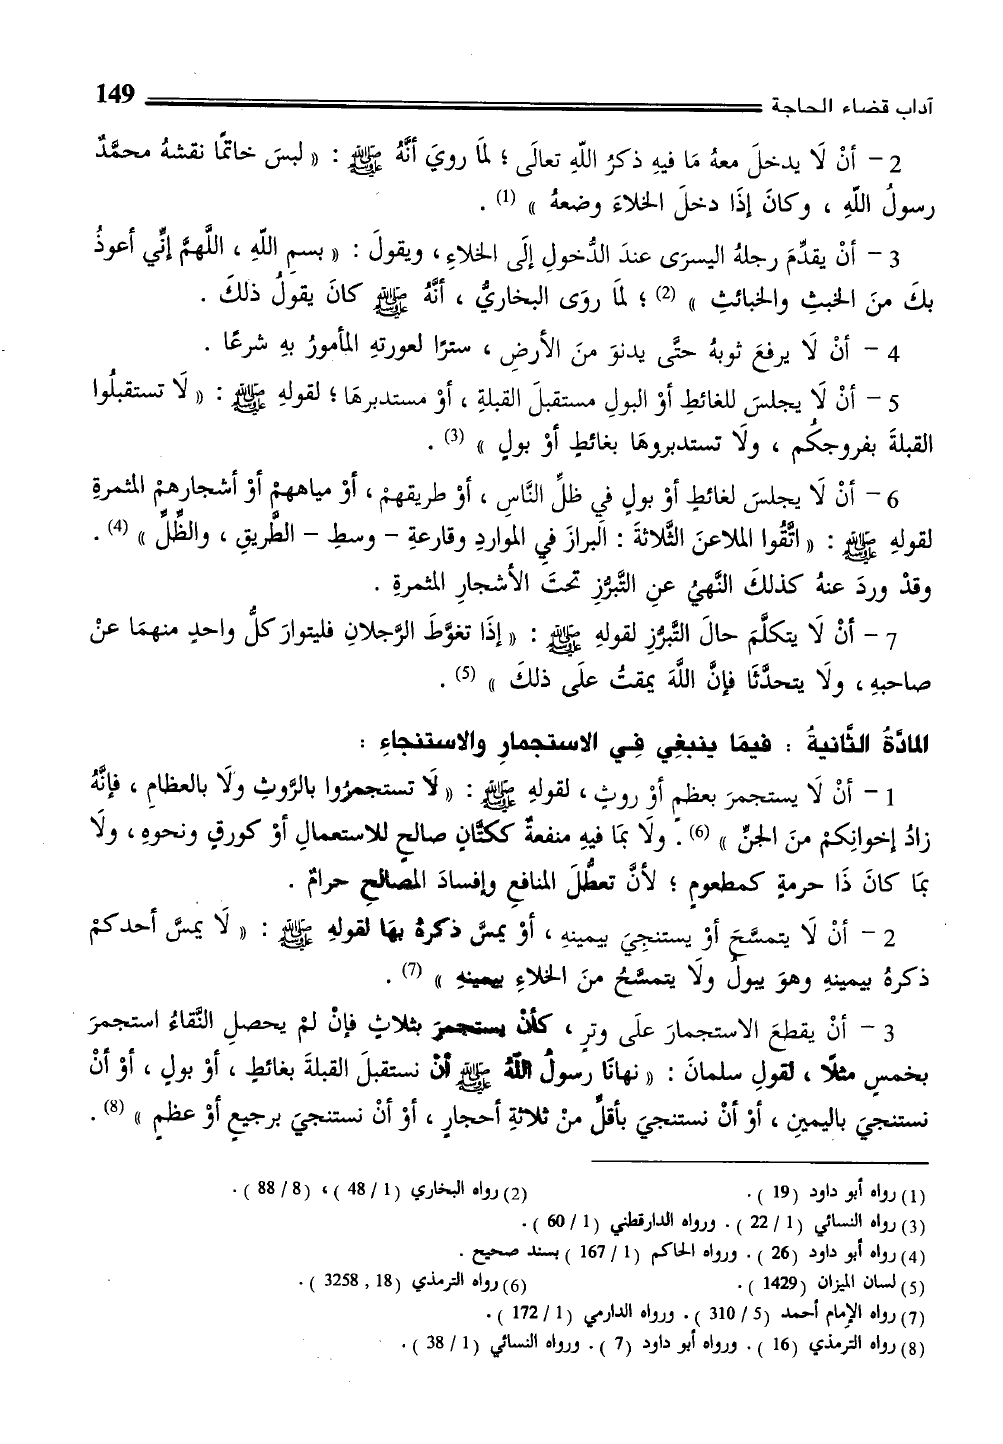 آداب قضاء الحاجة 149
2 - أنْ لَا يدخلَ معهُ مَا فيهِ ذكرُ اللّهِ تعالَى ؛ لمَا رويَ أنَّهُ ﷺ : « لبسَ خاتمًا نقشهُ محمَّدٌ
رسولُ اللّهِ ، وكانَ إذَا دخلَ الخلاءَ وضعهُ » (1) .
3 - أنْ يقدِّمَ رجلهُ اليسرَى عندَ الدُّخولِ إلَى الخلاءِ، ويقولَ : « بسمِ اللّهِ ، اللَّهمَّ إنِّي أعوذُ
بكَ منَ الخبثِ والخبائثِ » (2) ؛ لمَا روَى البخاريُّ ، أنَّهُ ﷺ كانَ يقولُ ذلكَ .
4 - أنْ لَا يرفعَ ثوبهُ حتَّى يدنوَ منَ الأرضِ ، سترًا لعورتهِ المأمورُ بهِ شرعًا .
5 - أنْ لَا يجلسَ للغائطِ أوْ البولِ مستقبلَ القبلةِ ، أوْ مستدبرهَا؛ لقولهِ ﷺ : « لَا تستقبلُوا
القبلةَ بفروجكُم ، ولَا تستدبروهَا بغائطٍ أوْ بولٍ » (3) .
6 - أنْ لَا يجلسَ لغائطٍ أوْ بولٍ في ظلِّ النَّاسِ ، أوْ طريقهمْ ، أوْ مياههمْ أوْ أشجارهمْ المثمرةِ
لقولهِ ﷺ : « اتَّقُوا الملاعنَ الثَّلاثةَ : البرازَ في المواردِ وقارعةِ - وسطِ - الطَّريقِ ، والظِّلِّ » (4) .
وقدْ وردَ عنهُ كذلكَ النَّهيُ عنِ التَّبرُّزِ تحتَ الأشجارِ المثمرةِ .
7 - أنْ لَا يتكلَّمَ حالَ التَّبرُّزِ لقولهِ ﷺ : « إذَا تغوَّطَ الرَّجلانِ فليتوارَ كلُّ واحدٍ منهمَا عنْ
صاحبهِ ، ولَا يتحدَّثَا فإنَّ اللَّهَ يمقتُ علَى ذلكَ » (5) .
المادَّةُ الثَّانيةُ : فيمَا ينبغِي فِي الاستجمارِ والاستنجاءِ :
1 - أنْ لَا يستجمرَ بعظمٍ أوْ روثٍ ، لقولهِ ﷺ : « لَا تستجمرُوا بالرَّوثِ ولَا بالعظامِ ، فإنَّهُ
زادُ إخوانِكمْ منَ الجنِّ » (6) . ولَا بمَا فيهِ منفعةٌ ككتَّانٍ صالحٍ للاستعمالِ أوْ كورقٍ ونحوهِ ، ولَا
بمَا كانَ ذَا حرمةٍ كمطعومٍ ؛ لأنَّ تعطُّلَ المنافعِ وإفسادَ المصالحِ حرامٌ .
2 - أنْ لَا يتمسَّحَ أوْ يستنجِيَ بيمينهِ ، أوْ يمسَّ ذكرهُ بهَا لقولهِ ﷺ : « لَا يمسَّ أحدكمْ
ذكرهُ بيمينهِ وهوَ يبولُ ولَا يتمسَّحُ منَ الخلاءِ بيمينهِ » (7) .
3 - أنْ يقطعَ الاستجمارَ علَى وترٍ ، كأنْ يستجمرَ بثلاثٍ فإنْ لمْ يحصلِ النَّقاءُ استجمرَ
بخمسٍ مثلًا ، لقولِ سلمانَ : « نهانَا رسولُ اللّهُ ﷺ أنْ نستقبلَ القبلةَ بغائطٍ ، أوْ بولٍ ، أوْ أنْ
نستنجيَ باليمينِ ، أوْ أنْ نستنجيَ بأقلَّ منْ ثلاثةِ أحجارٍ ، أوْ أنْ نستنجيَ برجيعٍ أوْ عظمٍ » (8) .
(1) رواه أبو داود ( 19 ) . (2) رواه البخاري ( 1 / 48 ) ، ( 8 / 88 ) .
(3) رواه النسائي ( 1 / 22 ) . ورواه الدارقطني ( 1 / 60 ) .
(4) رواه أبو داود ( 26 ) . ورواه الحاكم ( 1 / 167 ) بسند صحيح .
(5) لسان الميزان ( 1429 ) . (6) رواه الترمذي ( 18 , 3258 ) .
(7) رواه الإمام أحمد ( 5 / 310 ) . ورواه الدارمي ( 1 / 172 ) .
(8) رواه الترمذي ( 16 ) . ورواه أبو داود ( 7 ) . ورواه النسائي ( 1 / 38 ) .